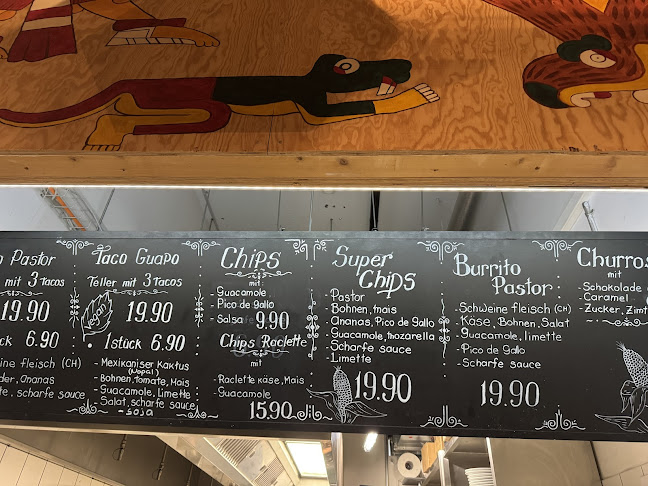 Pastor
mit 3 Tacos
19.90
6.90
fleisch (CH)
Ananas
scharfe sauce
Taco Guapo
Teller mit 3 Tacos
Vegan
19.90
1 stück 6.90
- Mexikaniser Kaktus
(Nopal)
- Bohnen, Tomate, Mais
- Guacamole, Limette
- Salat, scharfe sauce
- soja
Chips
mit:
- Guacamole
- Pico de gallo
- Salsa 9.90
Chips Raclette
mit:
- Raclette käse, Mais
- Guacamole
15.90
Super
Chips
- Pastor
- Bohnen, mais
- Ananas, Pico de gallo
- Guacamole, mozarella
- Scharfe sauce
- Limette
19.90
Burrito
Pastor
- Schweine fleisch (CH)
- Käse, Bohnen, Salat
- Guacamole, limette
- Pico de gallo
- Scharfe sauce
19.90
Churros
mit
- Schokolade
- Caramel
- Zucker, Zimt